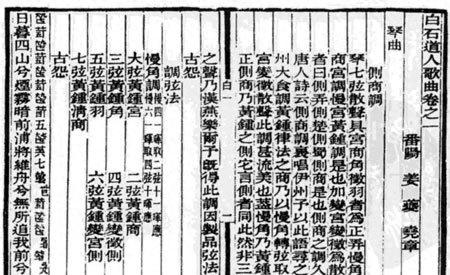 白石道人歌曲卷之一
番陽 姜夔 堯章
琴曲
側商調
琴七弦散聲具宮商角徵羽者為正弄慢角
商宮調慢宮黃鍾調是也加變宮變徵為散
者曰側弄側楚側蜀側商是也側商之調久
唐人詩云側商調裏唱伊州予以此語尋之
州大食調黃鍾律法之商乃以慢角轉弦取
宮變徵散聲此調甚流美也蓋慢角乃黃鍾
正側商乃黃鍾之側它言側者同此然非三
之聲乃漢燕樂爾予既得此調因製品弦法
古怨
調弦法
慢角調 慢四一暉取二弦十一暉應
慢六一暉取四弦十暉應
大弦黃鍾宮 二弦黃鍾商
三弦黃鍾角 四弦黃鍾變徵側
五弦黃鍾羽 六弦黃鍾變宮側
七弦黃鍾清商
古怨
日暮四山兮煙霧暗前浦將維舟兮無所追我前兮